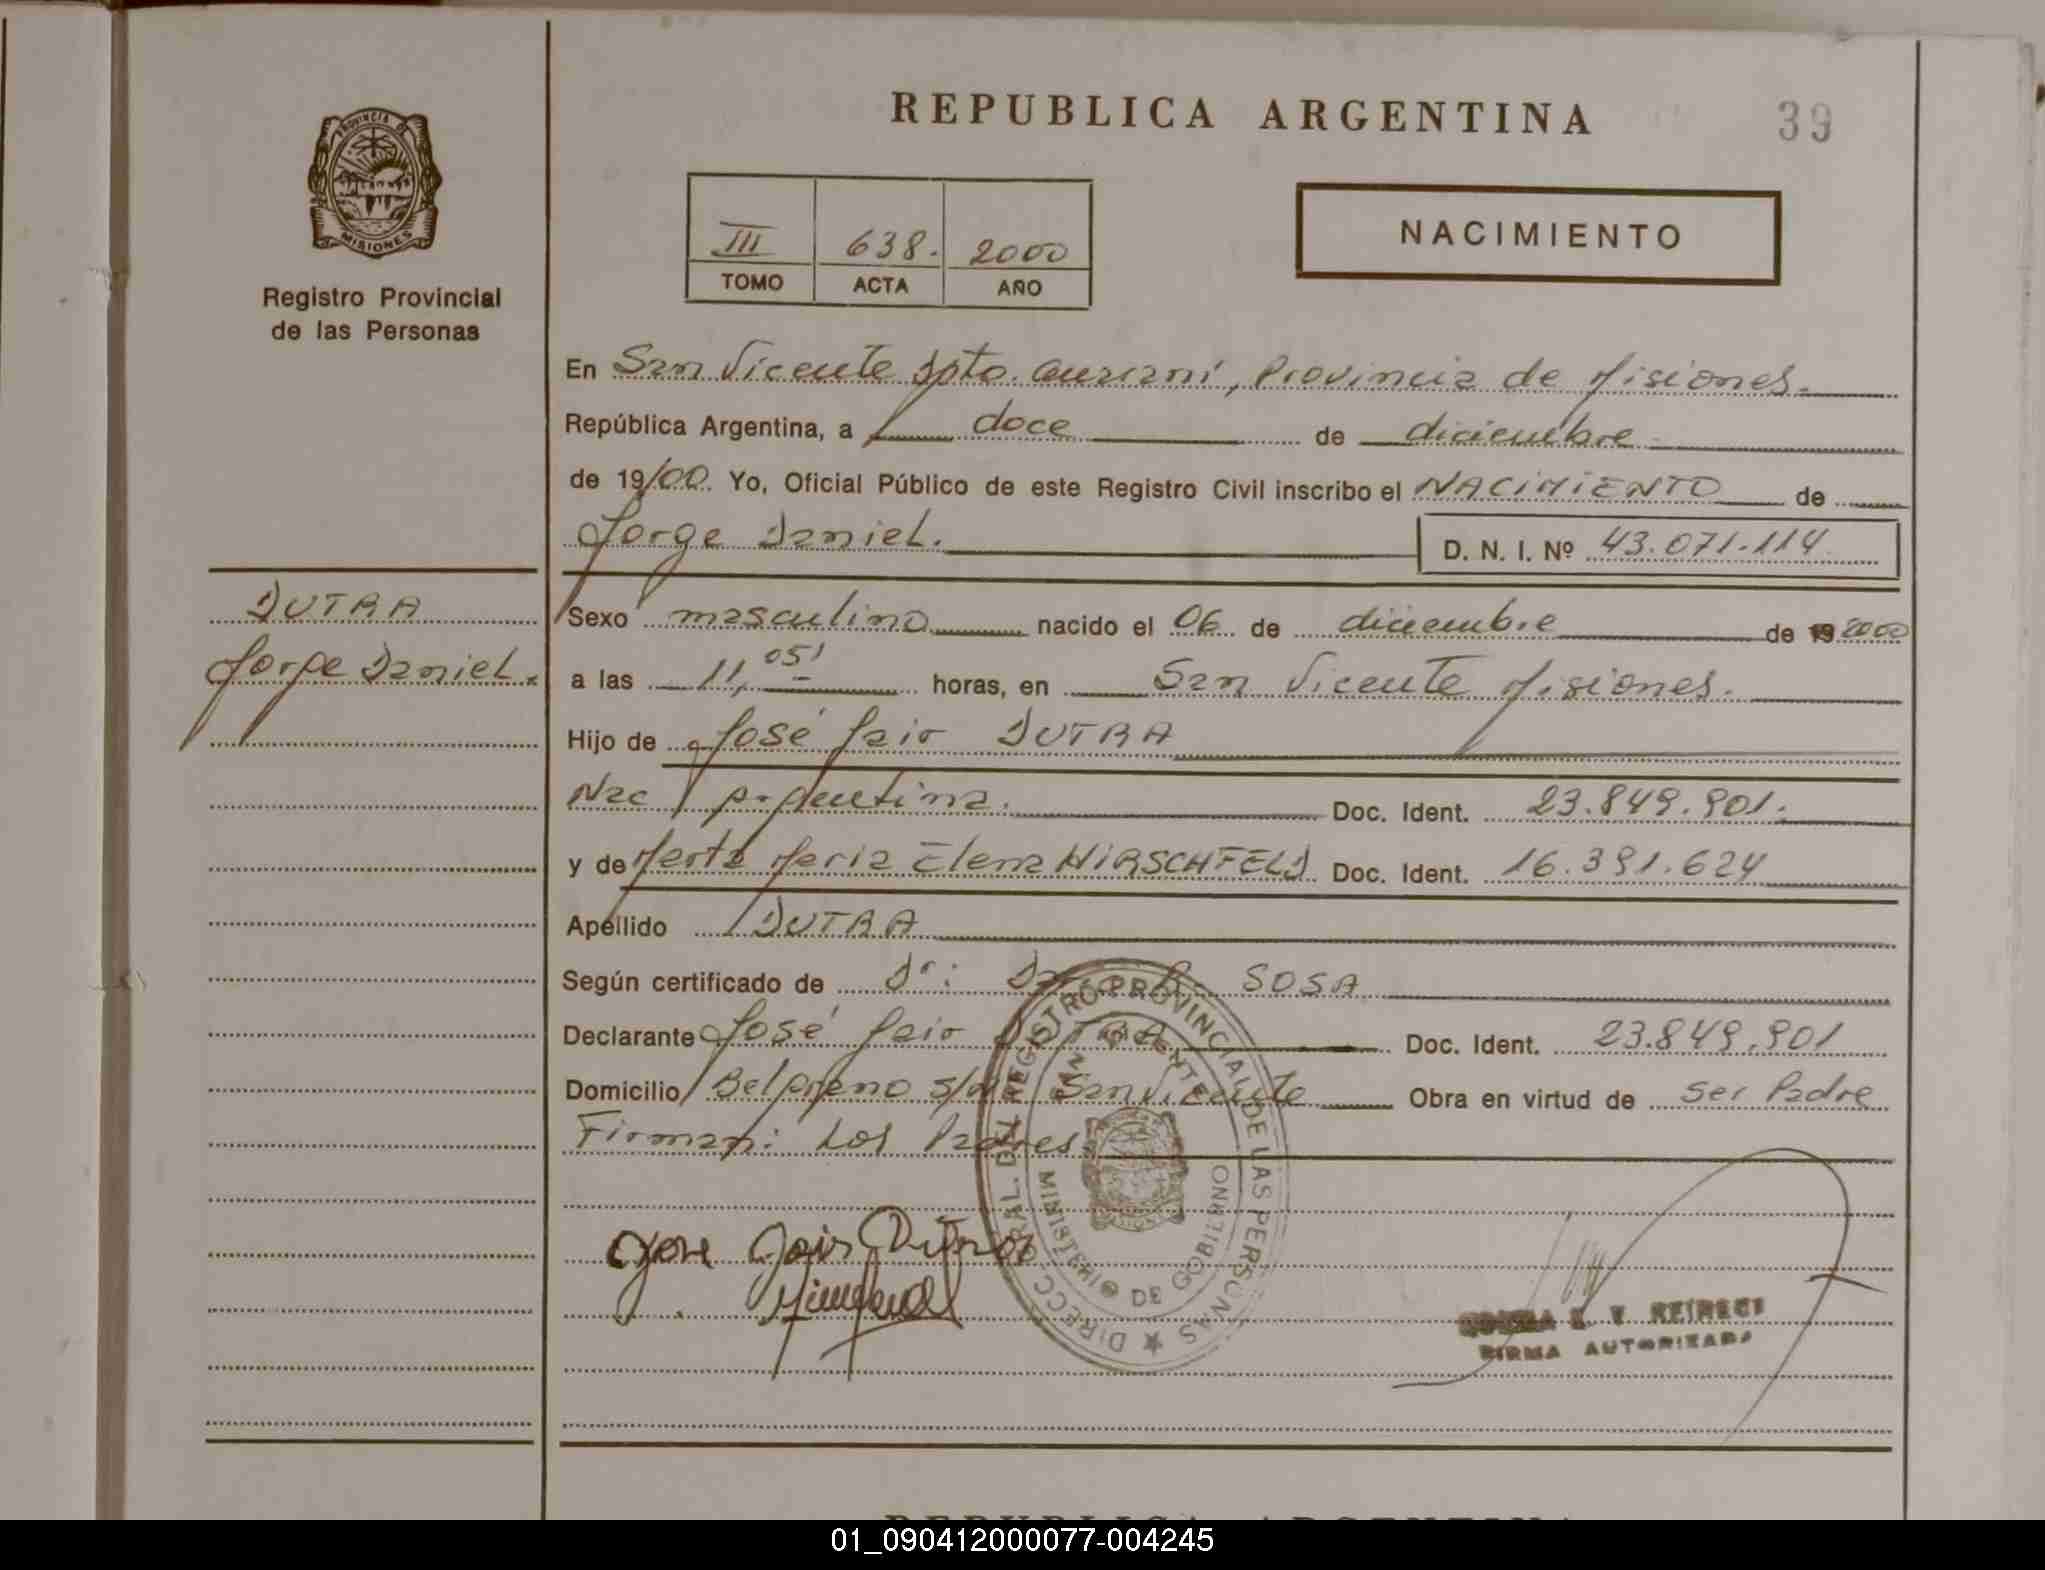 REPUBLICA ARGENTINA
39
PROVINCIA DE
MISIONES
Registro Provincial
de las Personas
III 638. 2000
TOMO ACTA AÑO
NACIMIENTO
En San Vicente Dpto. Guaraní, Provincia de Misiones.
República Argentina, a doce de diciembre
de 19/00. Yo, Oficial Público de este Registro Civil inscribo el NACIMIENTO de
Jorge Daniel. D. N. I. Nº 43.071.114
DUTRA
Jorge Daniel.
Sexo masculino nacido el 06 de diciembre de 19 2000
a las 11,05' horas, en San Vicente Misiones.
Hijo de José Jair DUTRA
Nac argentina. Doc. Ident. 23.849.901.
y de Marta Maria Elena HIRSCHFELD Doc. Ident. 16.391.624
Apellido DUTRA
Según certificado de Dr: SOSA
Declarante José Jair DUTRA Doc. Ident. 23.849.901
Domicilio Belgrano s/nº San Vicente Obra en virtud de ser Padre
Firman: Los Padres
Jose Jair Dutra
DIRECC. GRAL. DEL REGISTRO PROVINCIAL DE LAS PERSONAS
SAN VICENTE
MINISTERIO DE GOBIERNO
FIRMA AUTORIZADA
REPUBLICA ARGENTINA
01_090412000077-004245